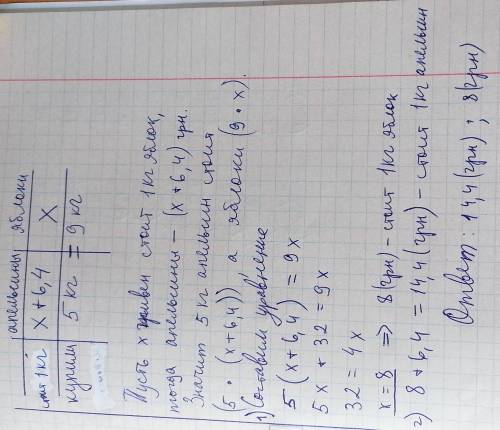 апельсины яблоки
стоит 1 кг x+6,4 X
купили 5 кг = 9 кг
Пусть x гривен стоит 1 кг яблок,
тогда апельсины – (x+6,4) грн.
Значит 5 кг апельсин стоит
(5 · (x+6,4)), а яблоки (9 · x).
1) Составим уравнение
5 (x+6,4) = 9x
5x + 32 = 9x
32 = 4x
x = 8 => 8 (грн) – стоит 1 кг яблок
2) 8 + 6,4 = 14,4 (грн) – стоит 1 кг апельсин
Ответ: 14,4 (грн) ; 8 (грн)